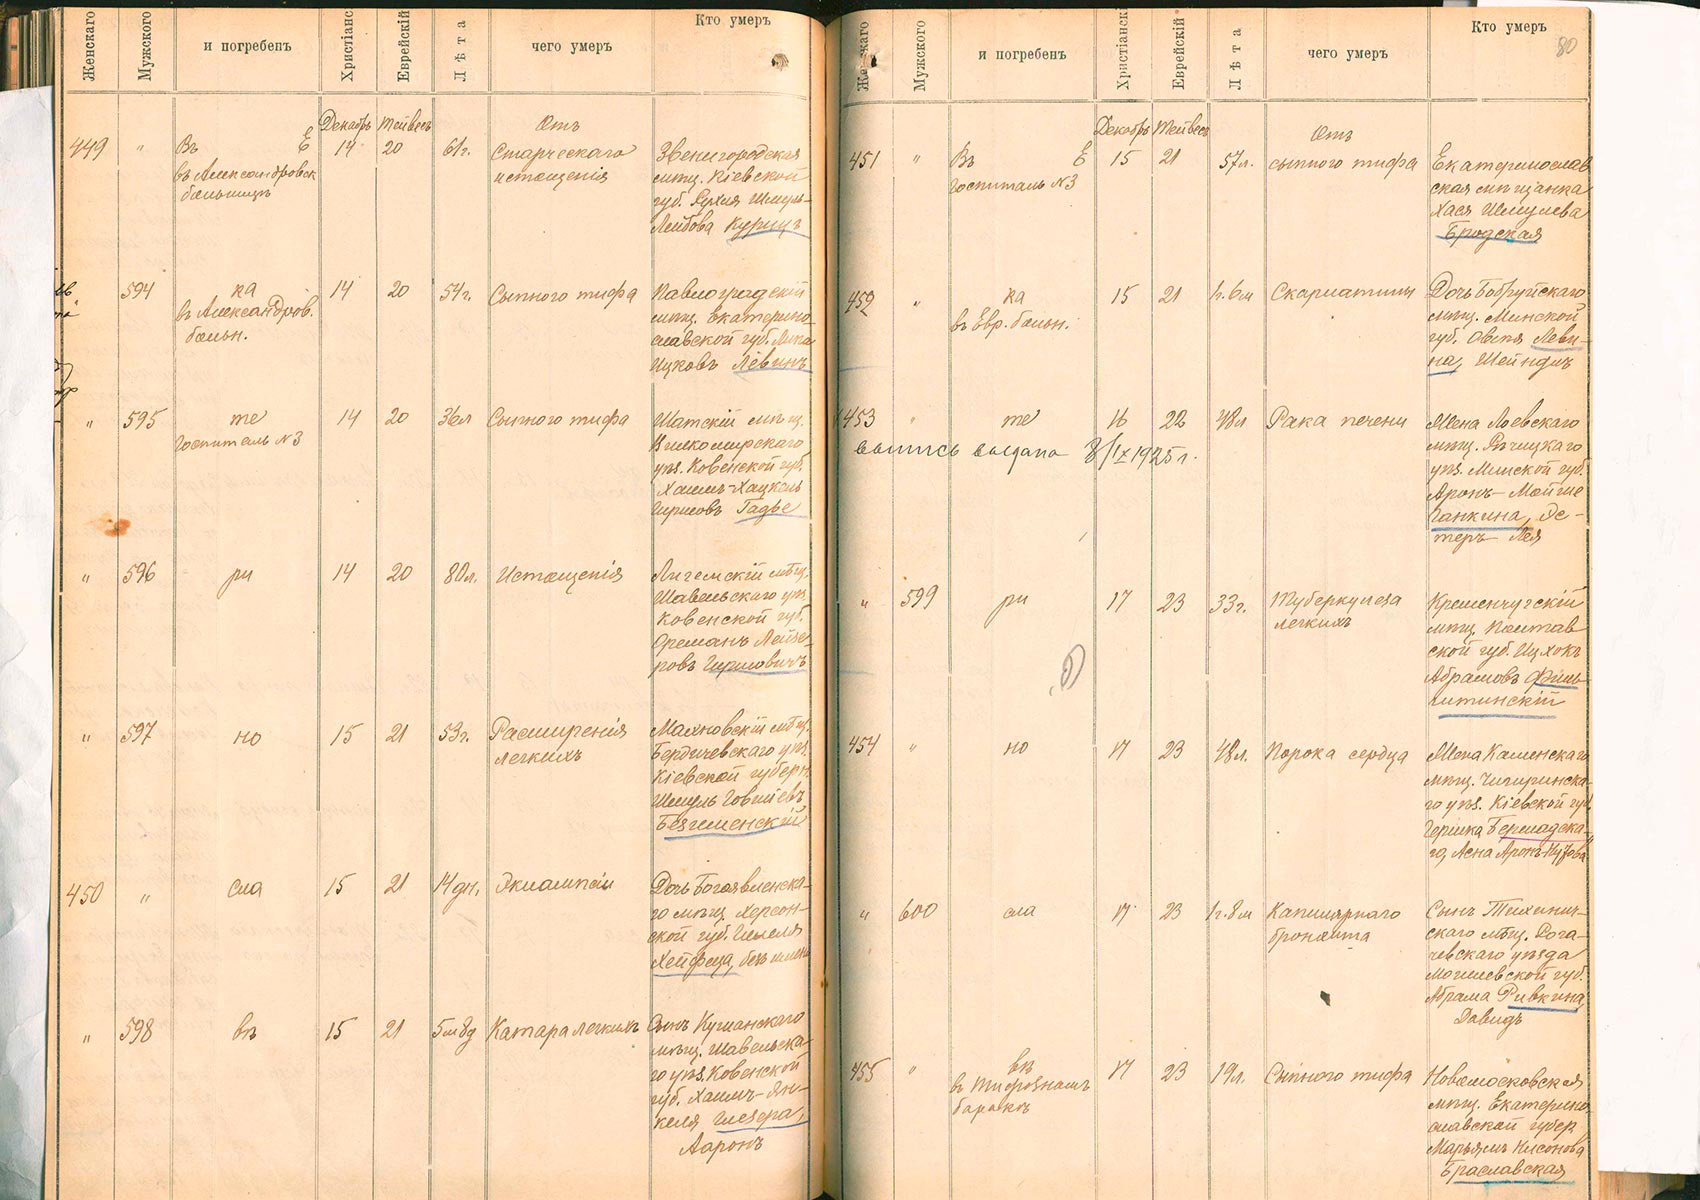 Женскаго
Мужского
и погребенъ
Христіанс
Еврейскій
Лѣта
чего умеръ
Кто умеръ
449 " Въ Е Декабрь 14 Тейвесъ 20 61г. Отъ Старческаго истощенія
въ Александровск
больницѣ
Звенигородская
мѣщ. Кіевской
губ. Рухля Шмуль-
Лейбова Курицъ
594 ка 14 20 54г. Сыпного тифа
въ Александров.
больн.
Павлоградскій
мѣщ. Екатерино-
славской губ.
Ицковъ Левинъ
" 595 те 14 20 36л Сыпного тифа
Госпиталь N3
Шатскій мѣщ.
Вилкомирскаго
уѣз. Ковенской губ.
Хаимъ-Хацкель
Гиршовъ Гадье
" 596 ри 14 20 80л. Истощенія
мѣщ.
Шавельскаго уѣз.
Ковенской губ.
Лейзе-
ровъ Гиршовичъ
" 597 но 15 21 53г. Расширенія
легкихъ
Махновскій мѣщ.
Бердичевскаго уѣз.
Кіевской губерн
Шмуль Говшіевъ
Безименскій
450 " сла 15 21 14дн. Эклампсіи
Дочь Богоявленска-
го мѣщ. Херсон-
ской губ.
Хейфеца, безъ имени
" 598 въ 15 21 5м8д Катара легкихъ
Сынъ Куршанскаго
мѣщ. Шавельска-
го уѣз. Ковенской
губ. Хаимъ-Ян-
келя Глезера,
Ааронъ
Женскаго
Мужского
и погребенъ
Христіанскі
Еврейскій
Лѣта
чего умеръ
Кто умеръ
80
451 " Въ Е Декабрь 15 Тейвесъ 21 57л. Отъ сыпного тифа
Госпиталь N3
Екатеринослав
ская мѣщанка
Хася Шмулева
Бродская
452 " ка 15 21 1г.6м Скарлатины
въ Евр. больн.
Дочь Бобруйскаго
мѣщ. Минской
губ. Овсея Леви-
на, Шейндль
453 " те 16 22 48л Рака печени
выпись выдана 8/IX 1925г.
Жена Лоевскаго
мѣщ. Рѣчицкаго
уѣз. Минской губ.
Аронъ-Мойше
Ганкина, Эс-
теръ-Лея
" 599 ри 17 23 33г. Туберкулеза
легкихъ
Кременчугскій
мѣщ. Полтав
ской губ. Ицхокъ
Абрамовъ Филь-
штинскій
454 " но 17 23 48л. Порока сердца
Жена Каменскаго
мѣщ. Чигиринска-
го уѣз. Кіевской губ
Гершка Бершадска-
го,
" 600 сла 17 23 1г.8м Капилярнаго
бронхита
Сынъ Тихинич-
скаго мѣщ. Рога-
чевскаго уѣзда
Могилевской губ.
Абрама Ривкина,
Давидъ
455 " въ 17 23 19л. Сыпного тифа
въ Тифозномъ
баракѣ
Новомосковская
мѣщ. Екатерино-
славской губер
Марьямъ Нисонова
Браславская